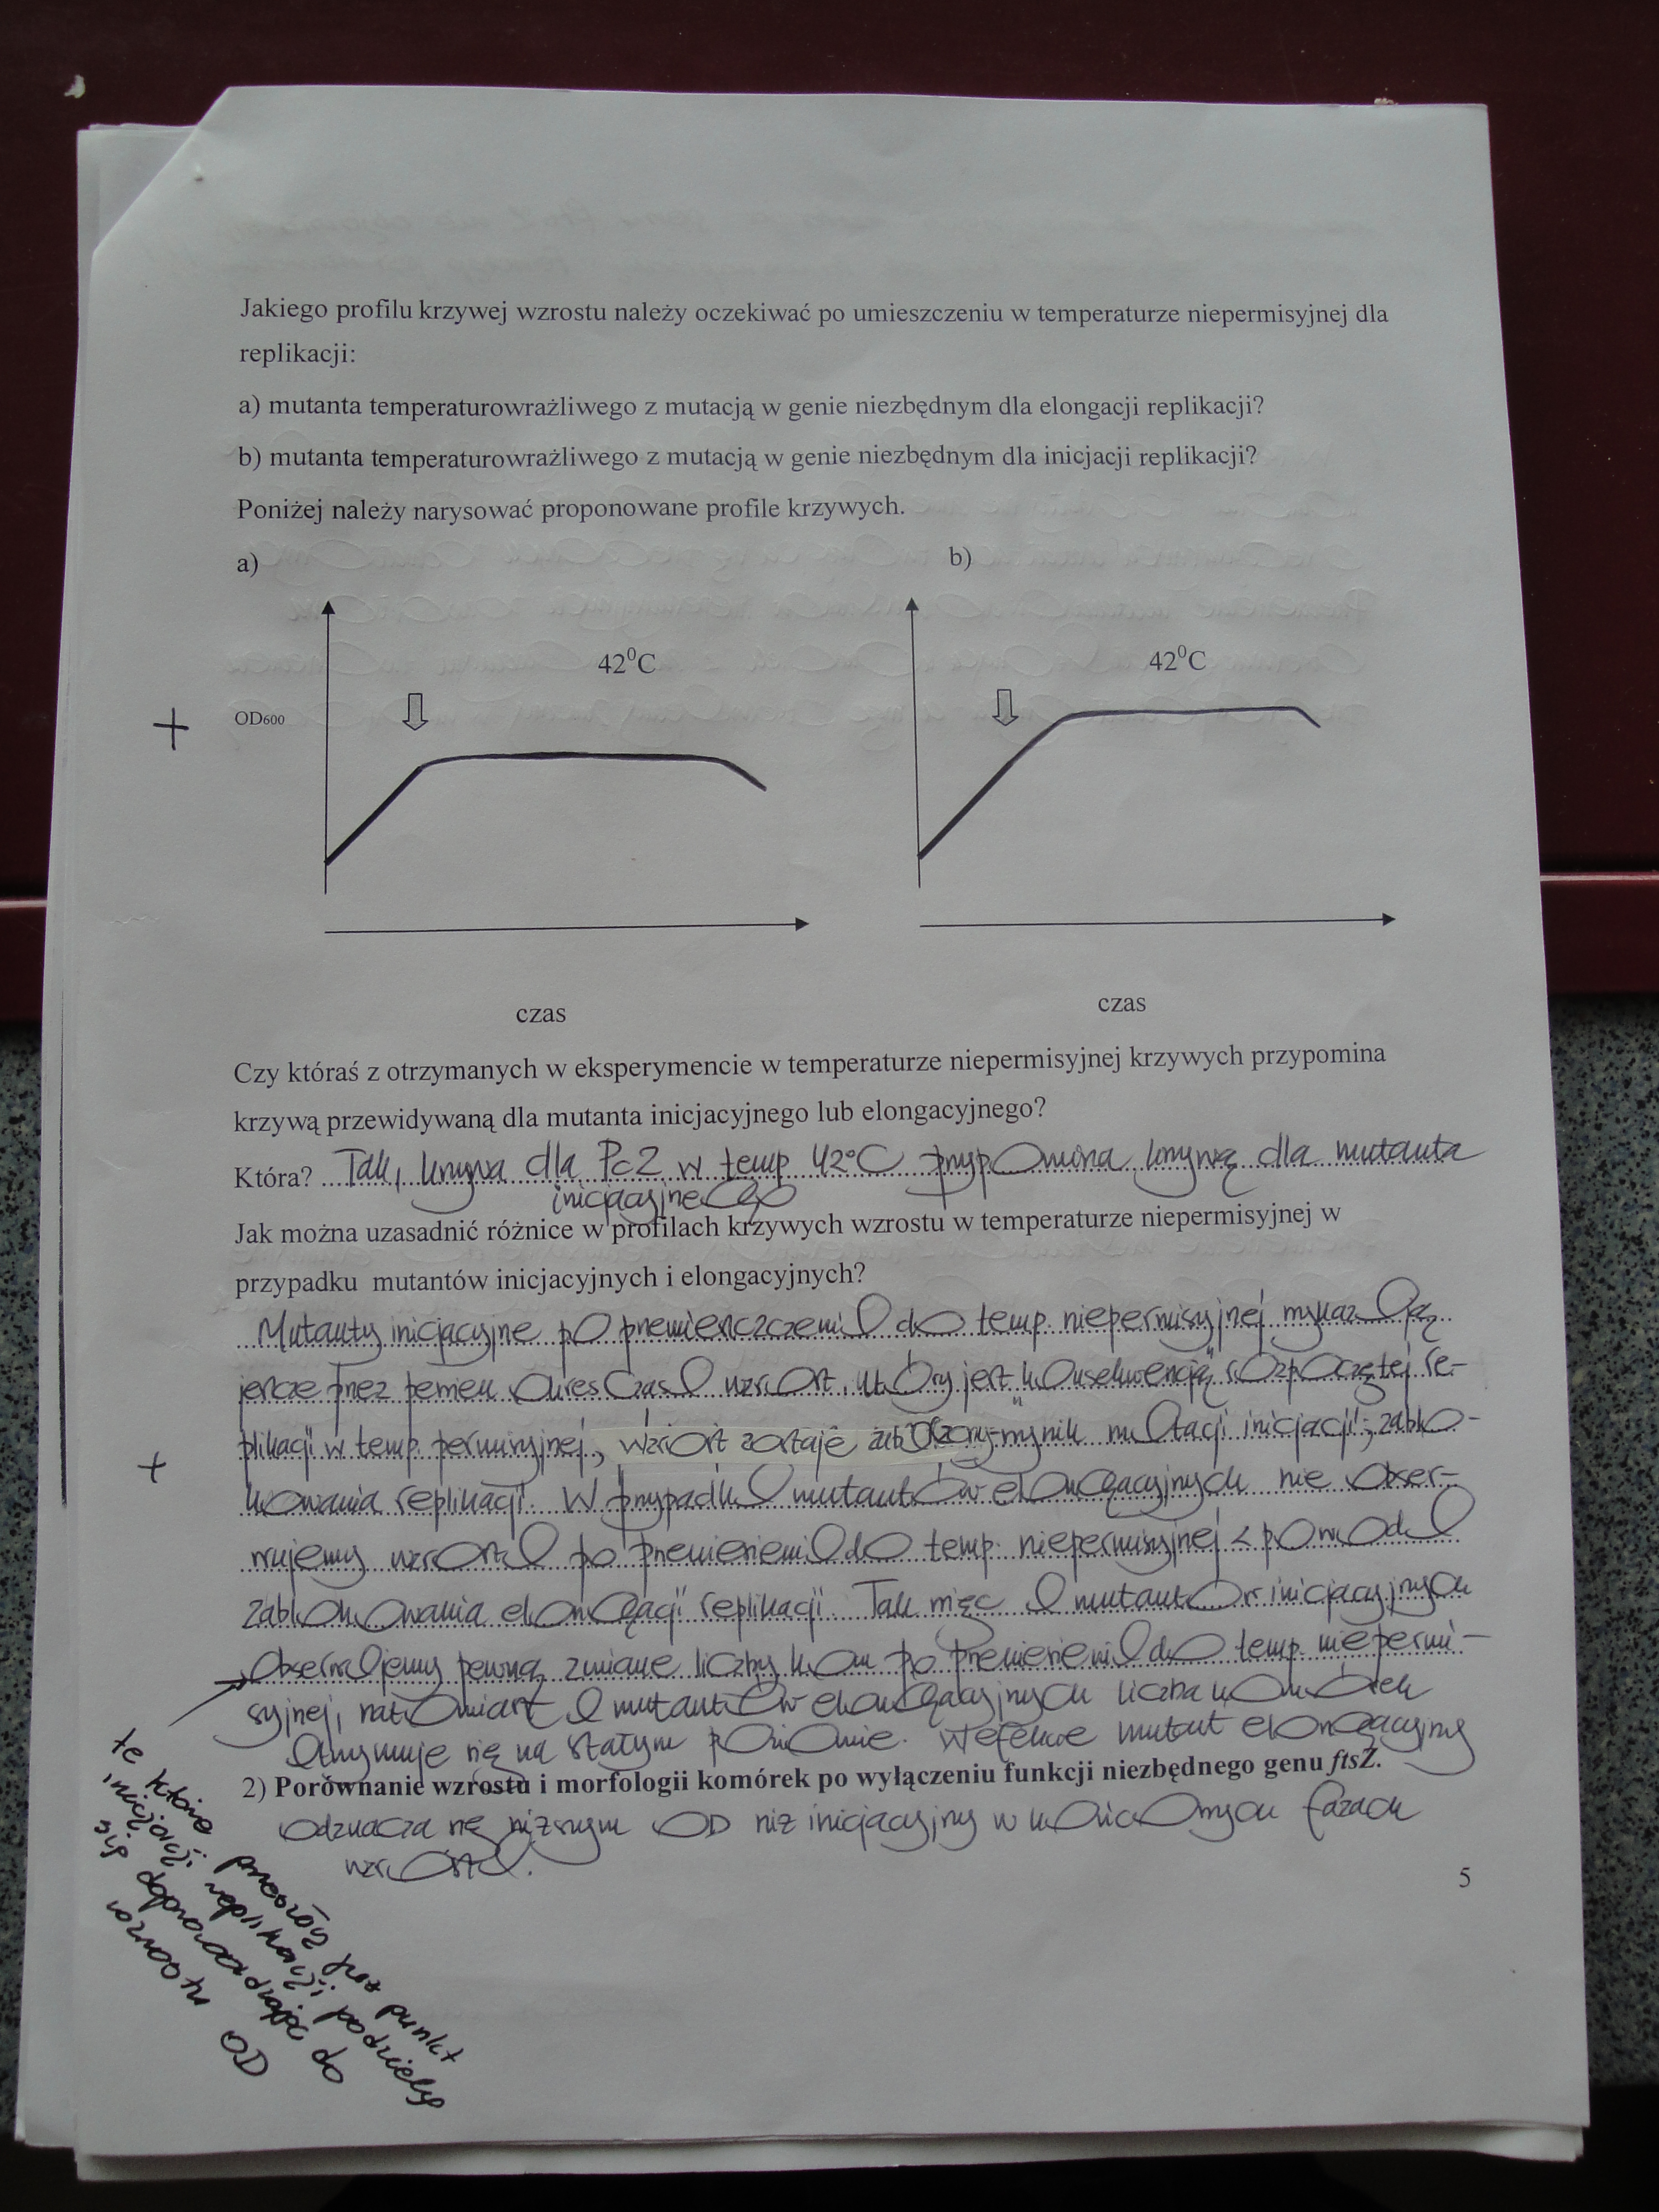 Jakiego profilu krzywej wzrostu należy oczekiwać po umieszczeniu w temperaturze niepermisyjnej dla
replikacji:
a) mutanta temperaturowrażliwego z mutacją w genie niezbędnym dla elongacji replikacji?
b) mutanta temperaturowrażliwego z mutacją w genie niezbędnym dla inicjacji replikacji?
Poniżej należy narysować proponowane profile krzywych.
a)
b)
42⁰C
42⁰C
+
OD600
czas
czas
Czy któraś z otrzymanych w eksperymencie w temperaturze niepermisyjnej krzywych przypomina
krzywą przewidywaną dla mutanta inicjacyjnego lub elongacyjnego?
Która? Tak, krzywa dla Pc2 w temp 42°C przypomina krzywą dla mutanta
inicjacyjnego
Jak można uzasadnić różnice w profilach krzywych wzrostu w temperaturze niepermisyjnej w
przypadku mutantów inicjacyjnych i elongacyjnych?
Mutanty inicjacyjne po przemieszczeniu do temp. niepermisyjnej wykazują
jeszcze przez pewien okres czasu wzrost, który jest "konsekwencją" rozpoczętej re-
plikacji w temp. permisyjnej, wzrost zostaje wynik mutacji inicjacji; zablo-
+
kowania replikacji. W przypadku mutantów elongacyjnych nie obser-
wujemy wzrostu po przeniesieniu do temp. niepermisyjnej z powodu
zablokowania elongacji replikacji. Tak więc u mutantów inicjacyjnych
obserwujemy pewną zmianę liczby kom po przeniesieniu do temp. niepermi-
syjnej, natomiast u mutantów elongacyjnych liczba komórek
utrzymuje się na stałym poziomie. W efekcie mutant elongacyjny
2) Porównanie wzrostu i morfologii komórek po wyłączeniu funkcji niezbędnego genu ftsZ.
odznacza się niższym OD niż inicjacyjny w końcowych fazach
wzrostu.
te które przeszły przez punkt
inicjacji replikacji podzielą
się doprowadzając do
wzrostu OD
5